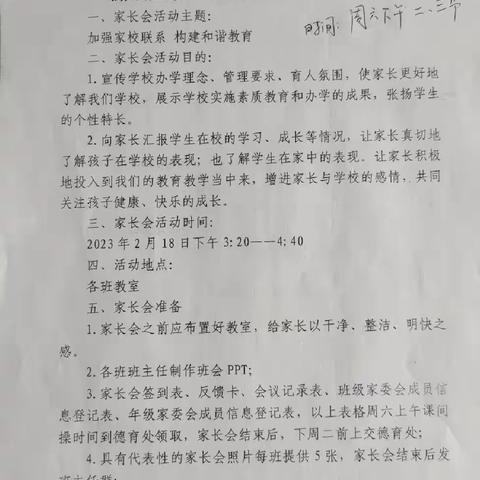 一、家长会活动主题:
时间: 周六下午 二、三节
加强家校联系 构建和谐教育
二、家长会活动目的:
1.宣传学校办学理念、管理要求、育人氛围，使家长更好地
了解我们学校，展示学校实施素质教育和办学的成果，张扬学生
的个性特长。
2.向家长汇报学生在校的学习、成长等情况，让家长真切地
了解孩子在学校的表现；也了解学生在家中的表现。让家长积极
地投入到我们的教育教学当中来，增进家长与学校的感情，共同
关注孩子健康、快乐的成长。
三、家长会活动时间:
2023年2月18日下午3:20——4:40
四、活动地点:
各班教室
五、家长会准备
1.家长会之前应布置好教室，给家长以干净、整洁、明快之
感。
2.各班班主任制作班会PPT;
3.家长会签到表、反馈卡、会议记录表、班级家委会成员信
息登记表、年级家委会成员信息登记表，以上表格周六上午课间
操时间到德育处领取，家长会结束后，下周二前上交德育处;
4.具有代表性的家长会照片每班提供5张，家长会结束后发
班主任群;